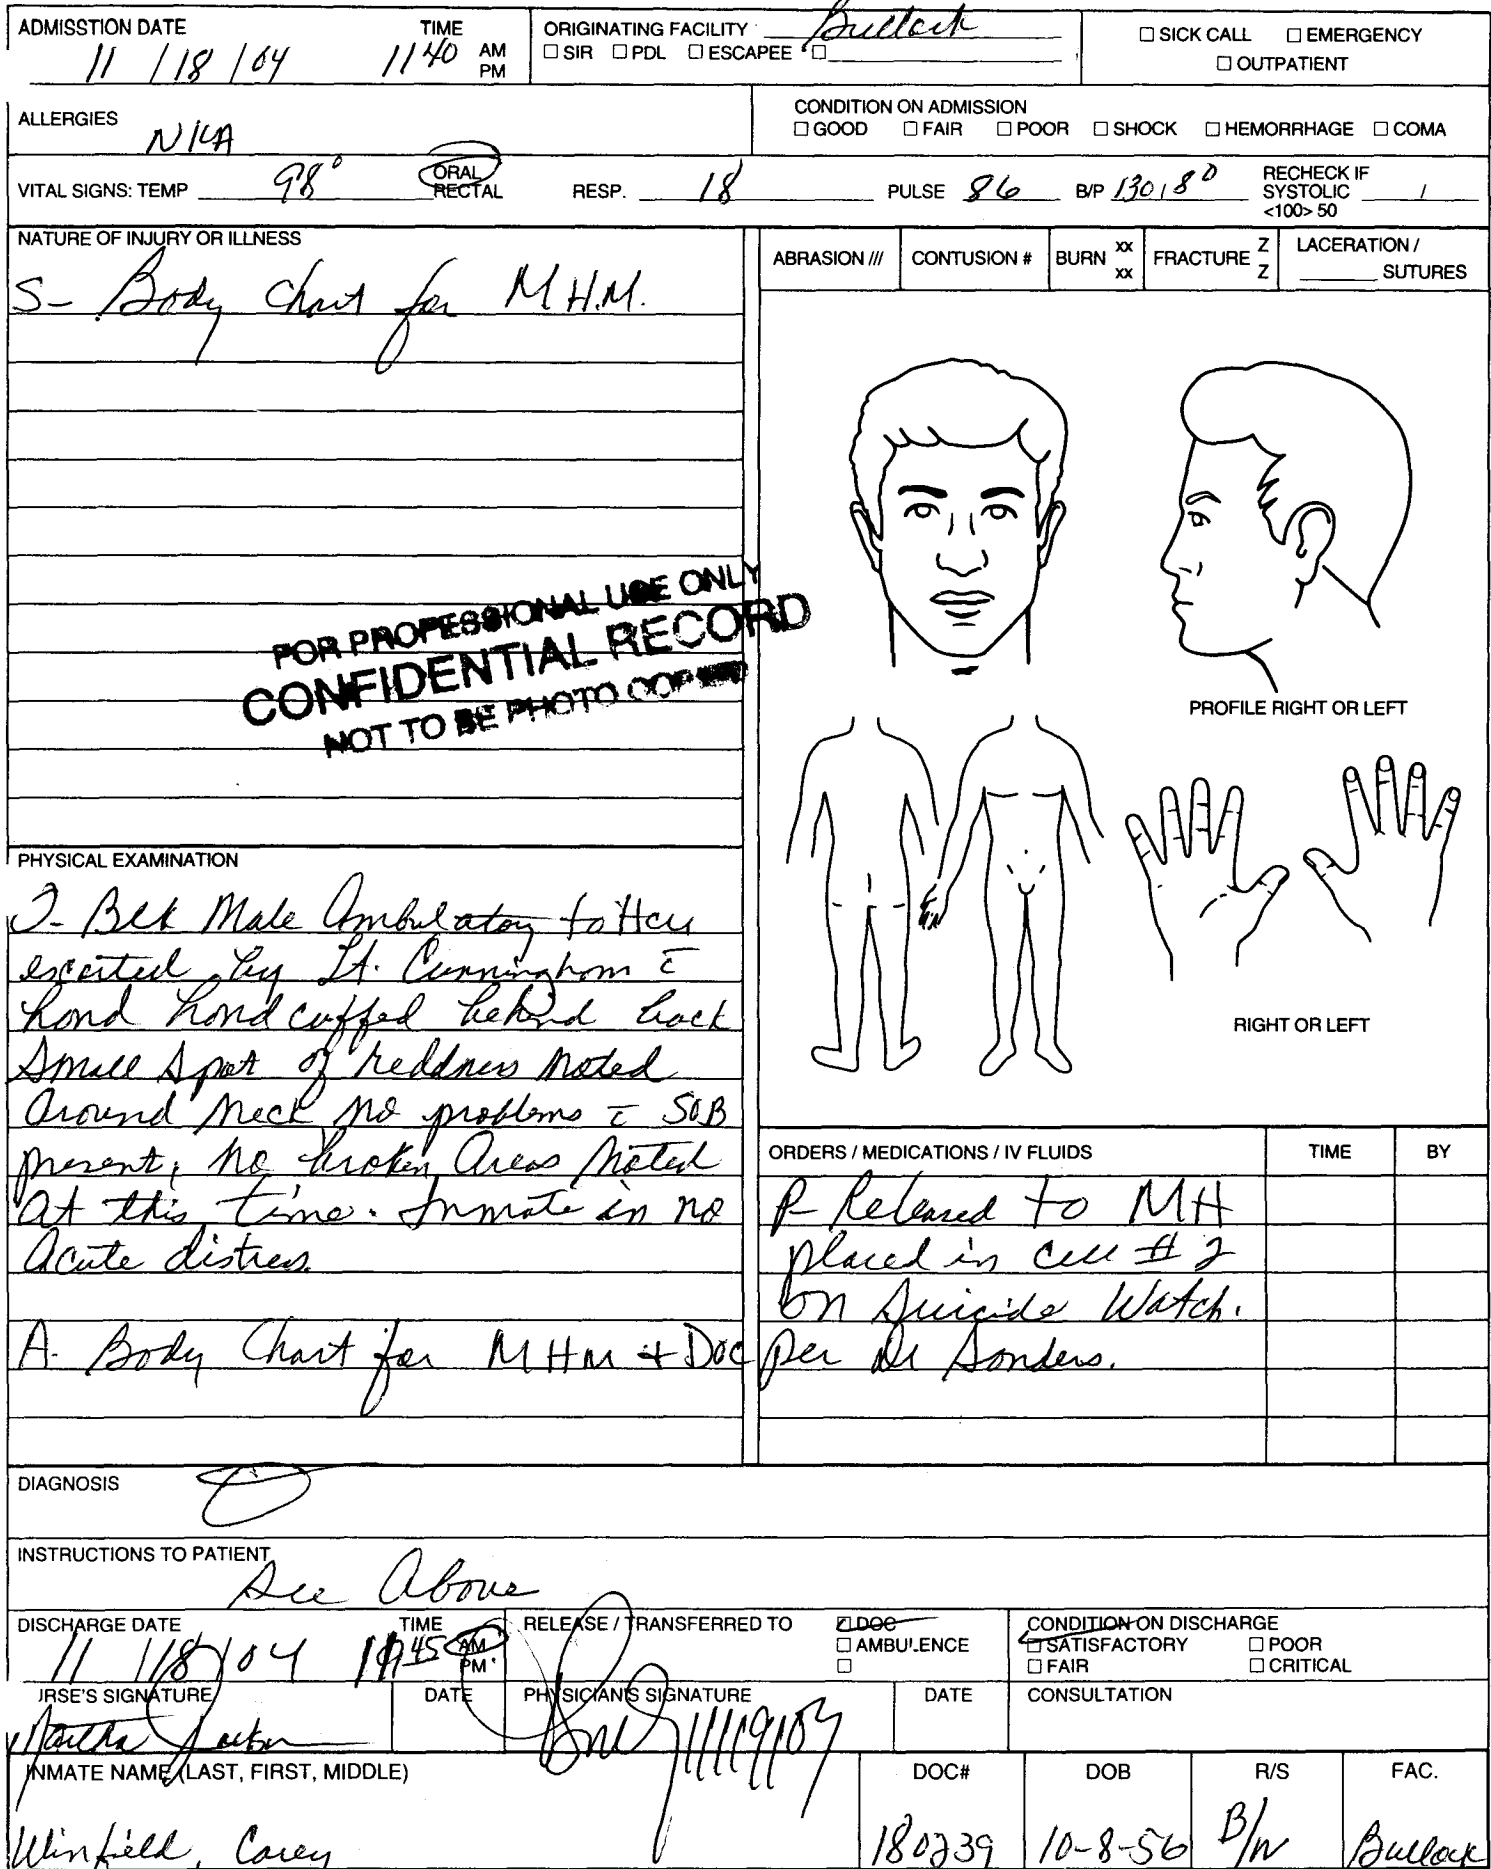 ADMISSTION DATE TIME ORIGINATING FACILITY Bullock
11 / 18 / 04 1140 AM PM
□ SIR □ PDL □ ESCAPEE □
□ SICK CALL □ EMERGENCY
□ OUTPATIENT
ALLERGIES NKA
CONDITION ON ADMISSION
□ GOOD □ FAIR □ POOR □ SHOCK □ HEMORRHAGE □ COMA
VITAL SIGNS: TEMP 98° ORAL RECTAL RESP. 18 PULSE 86 B/P 130/80 RECHECK IF SYSTOLIC <100> 50 /
NATURE OF INJURY OR ILLNESS
S- Body Chart for M H.M.
ABRASION /// CONTUSION # BURN xx xx FRACTURE Z Z LACERATION / SUTURES
FOR PROFESSIONAL USE ONLY
CONFIDENTIAL RECORD
NOT TO BE PHOTO COPIED
PROFILE RIGHT OR LEFT
RIGHT OR LEFT
PHYSICAL EXAMINATION
O- Blk Male Ambulatory to Hcu
escorted by Lt. Cunningham c̄
hand handcuffed behind back
Small spot of reddness noted
around neck no problems c̄ SOB
present, no broken Areas noted
At this time. Inmate in no
Acute distress.
A- Body Chart for MHM + Doc
ORDERS / MEDICATIONS / IV FLUIDS TIME BY
P- Released to MH
placed in cell # 2
on Suicide Watch.
per Dr Sanders.
DIAGNOSIS
INSTRUCTIONS TO PATIENT
See Above
DISCHARGE DATE TIME
11 / 18 / 04 1145 AM PM
RELEASE / TRANSFERRED TO ☑ DOC
□ AMBULENCE
□
CONDITION ON DISCHARGE
□ SATISFACTORY □ POOR
□ FAIR □ CRITICAL
RSE'S SIGNATURE DATE PHYSICIAN'S SIGNATURE DATE CONSULTATION
Martha
11/19/04
INMATE NAME (LAST, FIRST, MIDDLE) DOC# DOB R/S FAC.
Winfield, Carey 180239 10-8-56 B/M Bullock